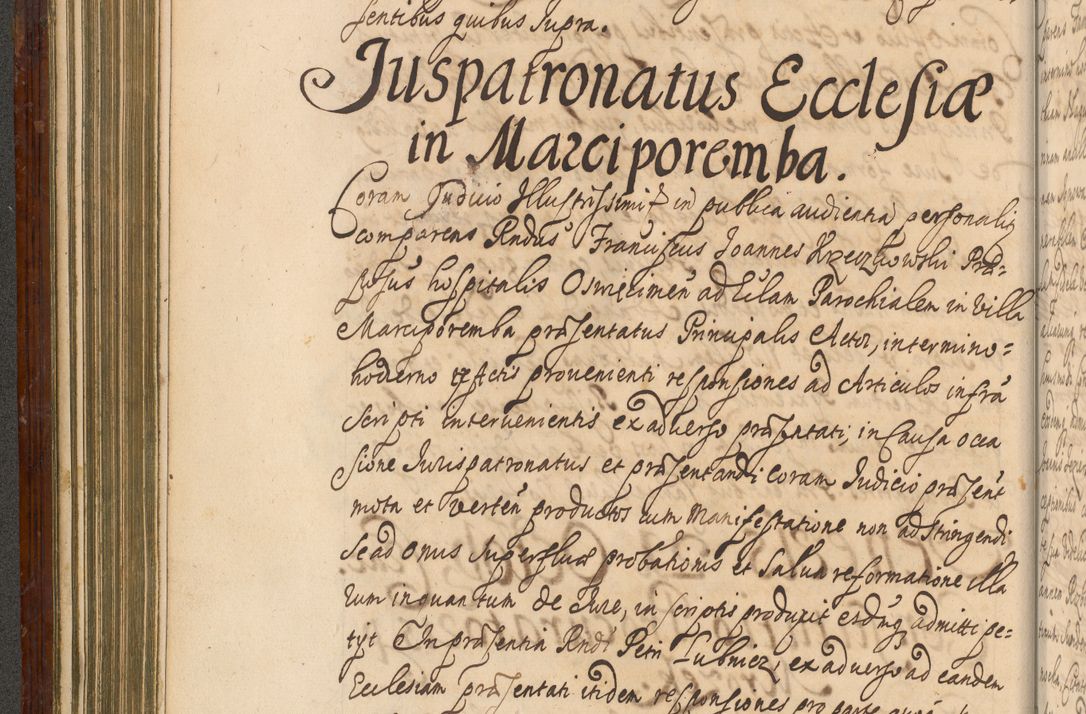 sentibus quibus supra.
Juspatronatus Ecclesiæ
in Marciporemba.
Coram Judicio Illustrissimi in publica audientia personaliter
comparens Rndus Franciscus Joannes Krzeczkowski Præ-
posus hospitalis Oswiecimen ad Eclam Parochialem in villa
Marciporemba præsentatus Principalis Actor, in termino
hodierno ex Actis provenienti responsiones ad Articulos infra
scripti intervenientis ex adverso præsentati, in Causa occa
sione Jurispatronatus et præsentandi coram Judicio præsent
mota et verten productos cum Manifestatione non adstringendi
se ad onus superfluæ probationis et salva reformatione illa
rum in quantum de Jure, in scriptis produxit easdemque admitti pe-
tyt In præsentia Rndi Petri Lubnicz, ex adverso ad eandem
Ecclesiam præsentati itidem responsiones pro parte